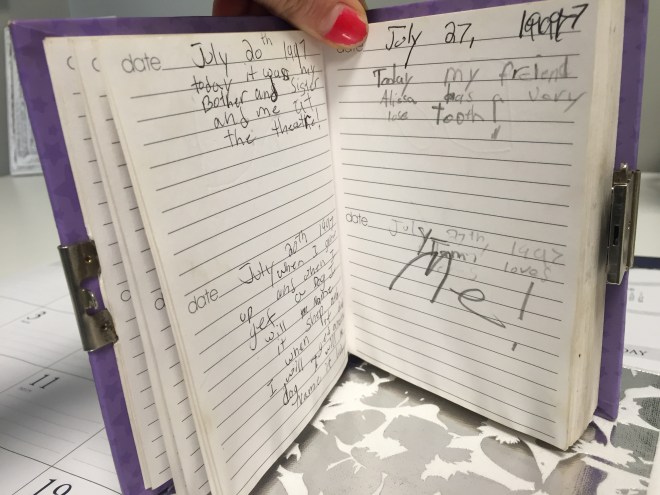 date July 20th 1997
today it was my
Bother and Sister
and me IAT
the theatre!
date July 20th 1997
when I grow
up and when I
get a Dog I
will make
it sleep
when I
I will
dog I will
name it
date July 27, 1997
Today my freland
Alissa has vary
lose Tooth!
date July 27th, 1997
loves
Me!
11
19
DAY